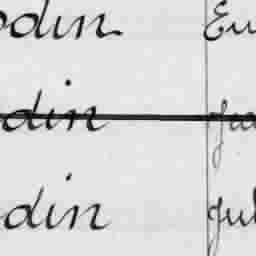 odin. Eu
din Ju
din Jul